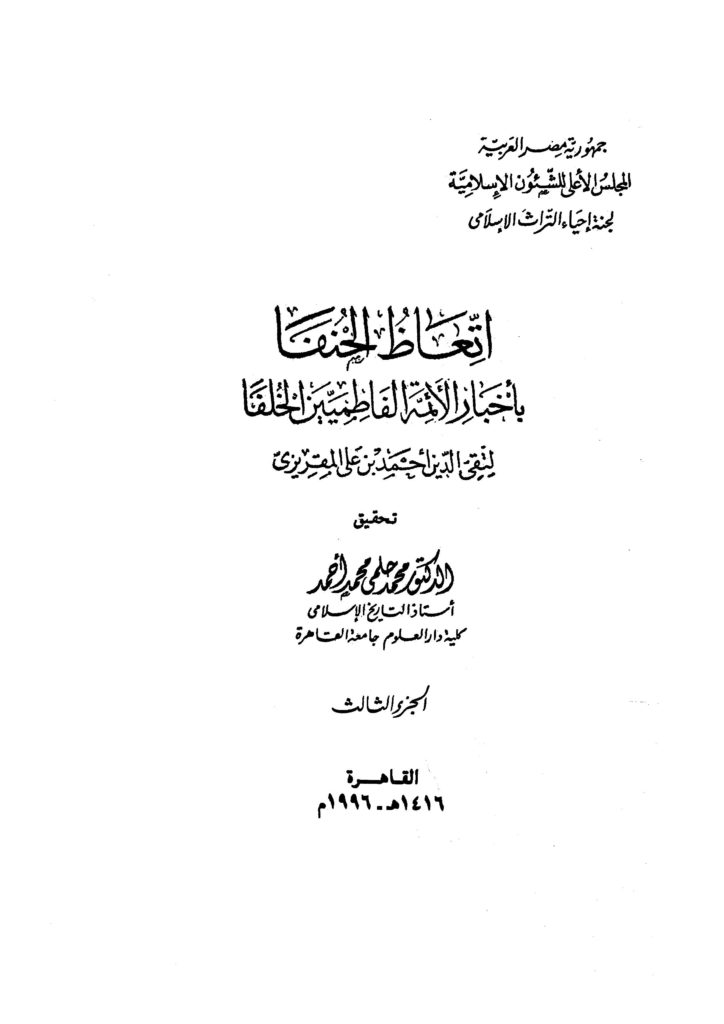 جمهورية مصر العربية
المجلس الأعلى للشئون الإسلامية
لجنة إحياء التراث الإسلامى
اتعاظ الحنفا
بأخبار الأئمة الفاطميين الخلفا
لتقى الدين أحمد بن على المقريزى
تحقيق
الدكتور محمد حلمى محمد أحمد
أستاذ التاريخ الإسلامى
كلية دار العلوم جامعة القاهرة
الجزء الثالث
القاهرة
١٤١٦هـ - ١٩٩٦م